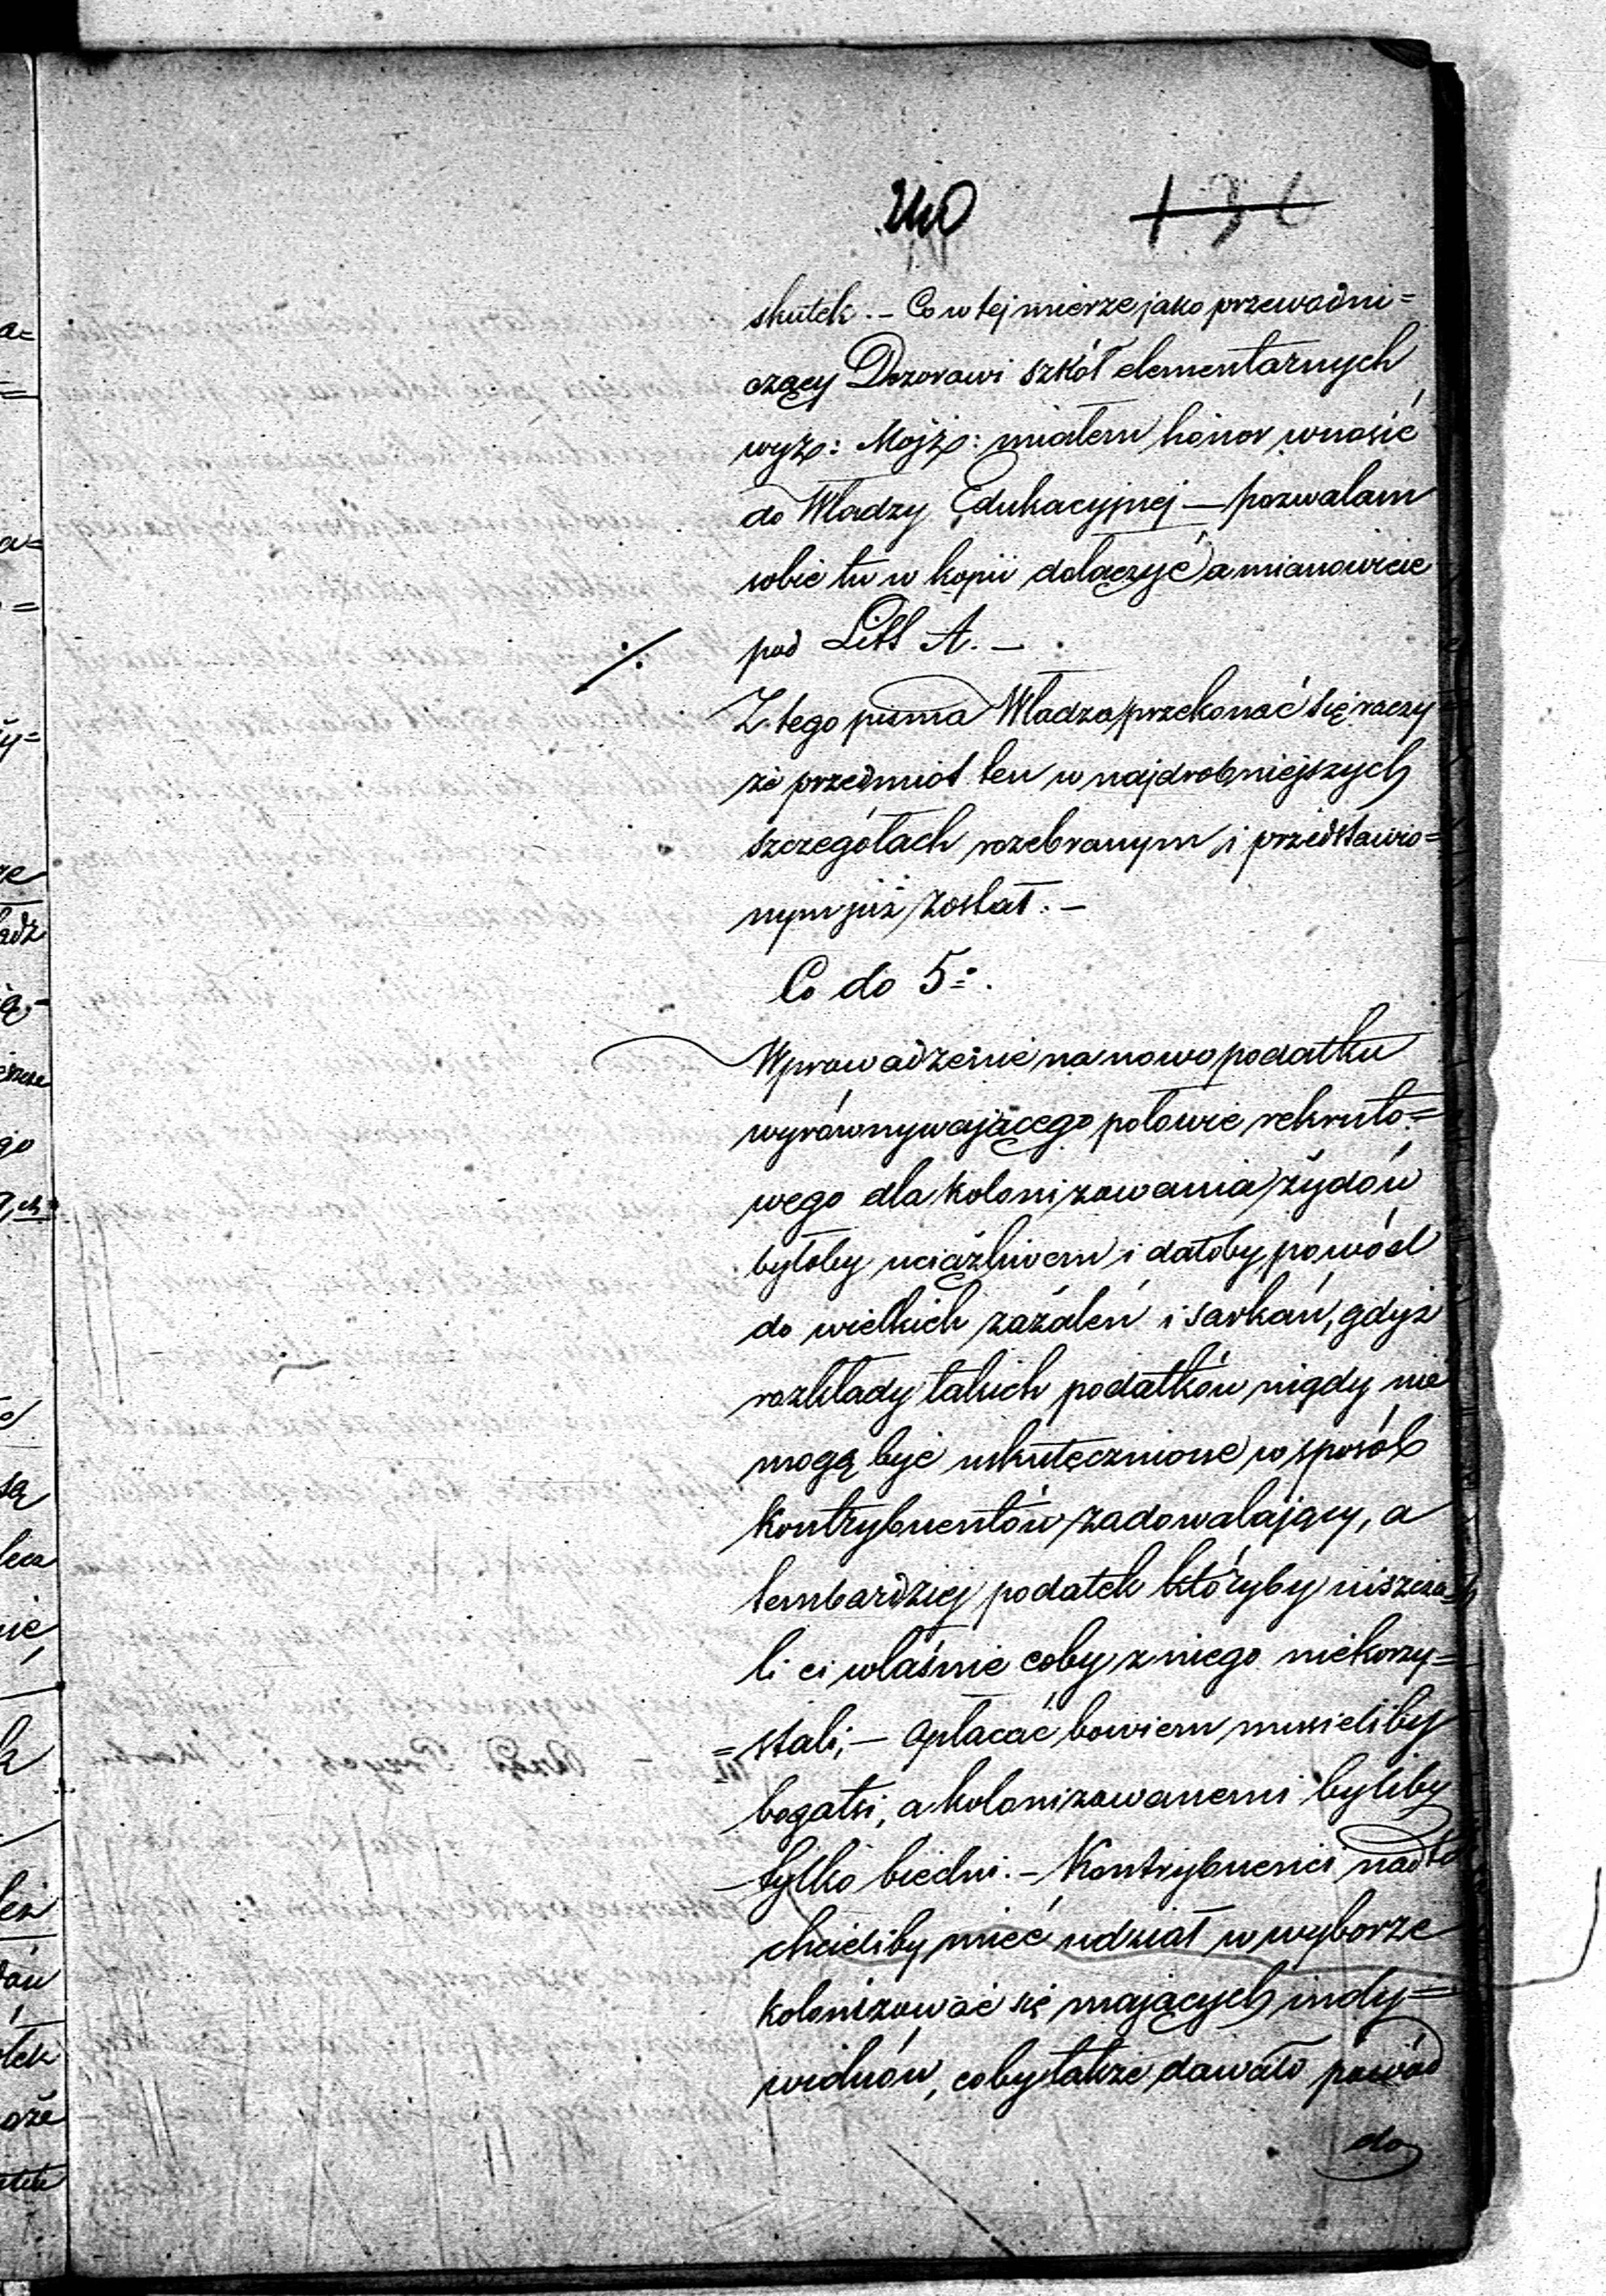 240 136
skutek. — Co w tej mierze jako przewodni=
czący Dozorowi szkół elementarnych
wyz: Mojż: miałem honor wnosić
do Władzy Edukacyjnej — pozwalam
sobie tu w kopii dołączyć a mianowicie
pod Litt A. —
Z tego pisma Władza przekonać się raczy
że przedmiot ten w najdrobniejszych
szczegółach rozebranym i przedstawio=
nym już został. —
Co do 5º.
Wprowadzenie na nowo podatku
wyrównywającego połowie rekruto=
wego dla kolonizowania żydów
byłoby uciążliwem i dałoby powód
do wielkich zażaleń i sarkań, gdyż
rozkłady takich podatków nigdy nie
mogą być uskutecznione w sposób
kontrybuentów zadowalający, a
tembardziej podatek któryby uiszcza=
li ci właśnie coby z niego niekorzy=
=stali; — opłacać bowiem musieliby
bogatsi, a kolonizowanemi byliby
tylko biedni. — Kontrybuenci nadto
chcieliby mieć udział w wyborze
kolonizować się mających indy=
widuów, coby także dawało powód
do